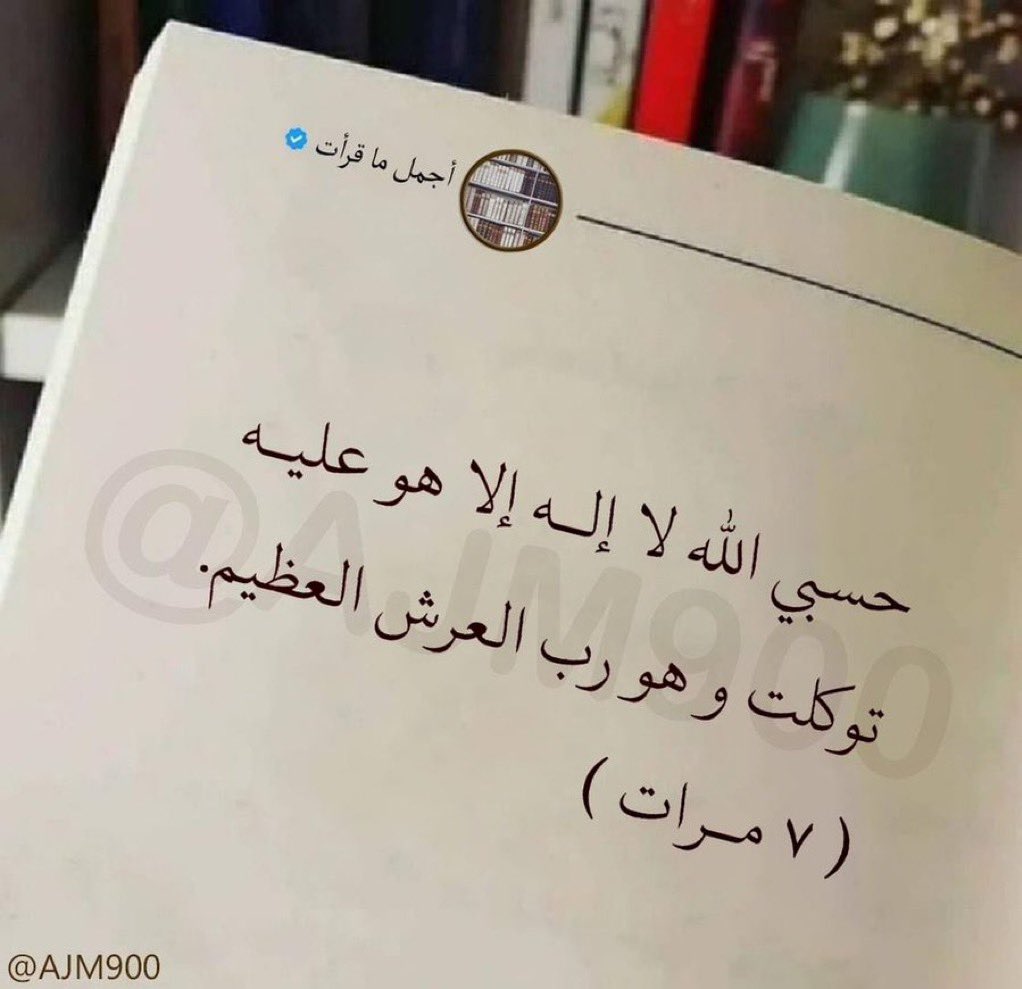 أجمل ما قرأت
حسبي الله لا إله إلا هو عليه
توكلت و هو رب العرش العظيم.
( ٧ مرات )
@AJM900
@AJM900